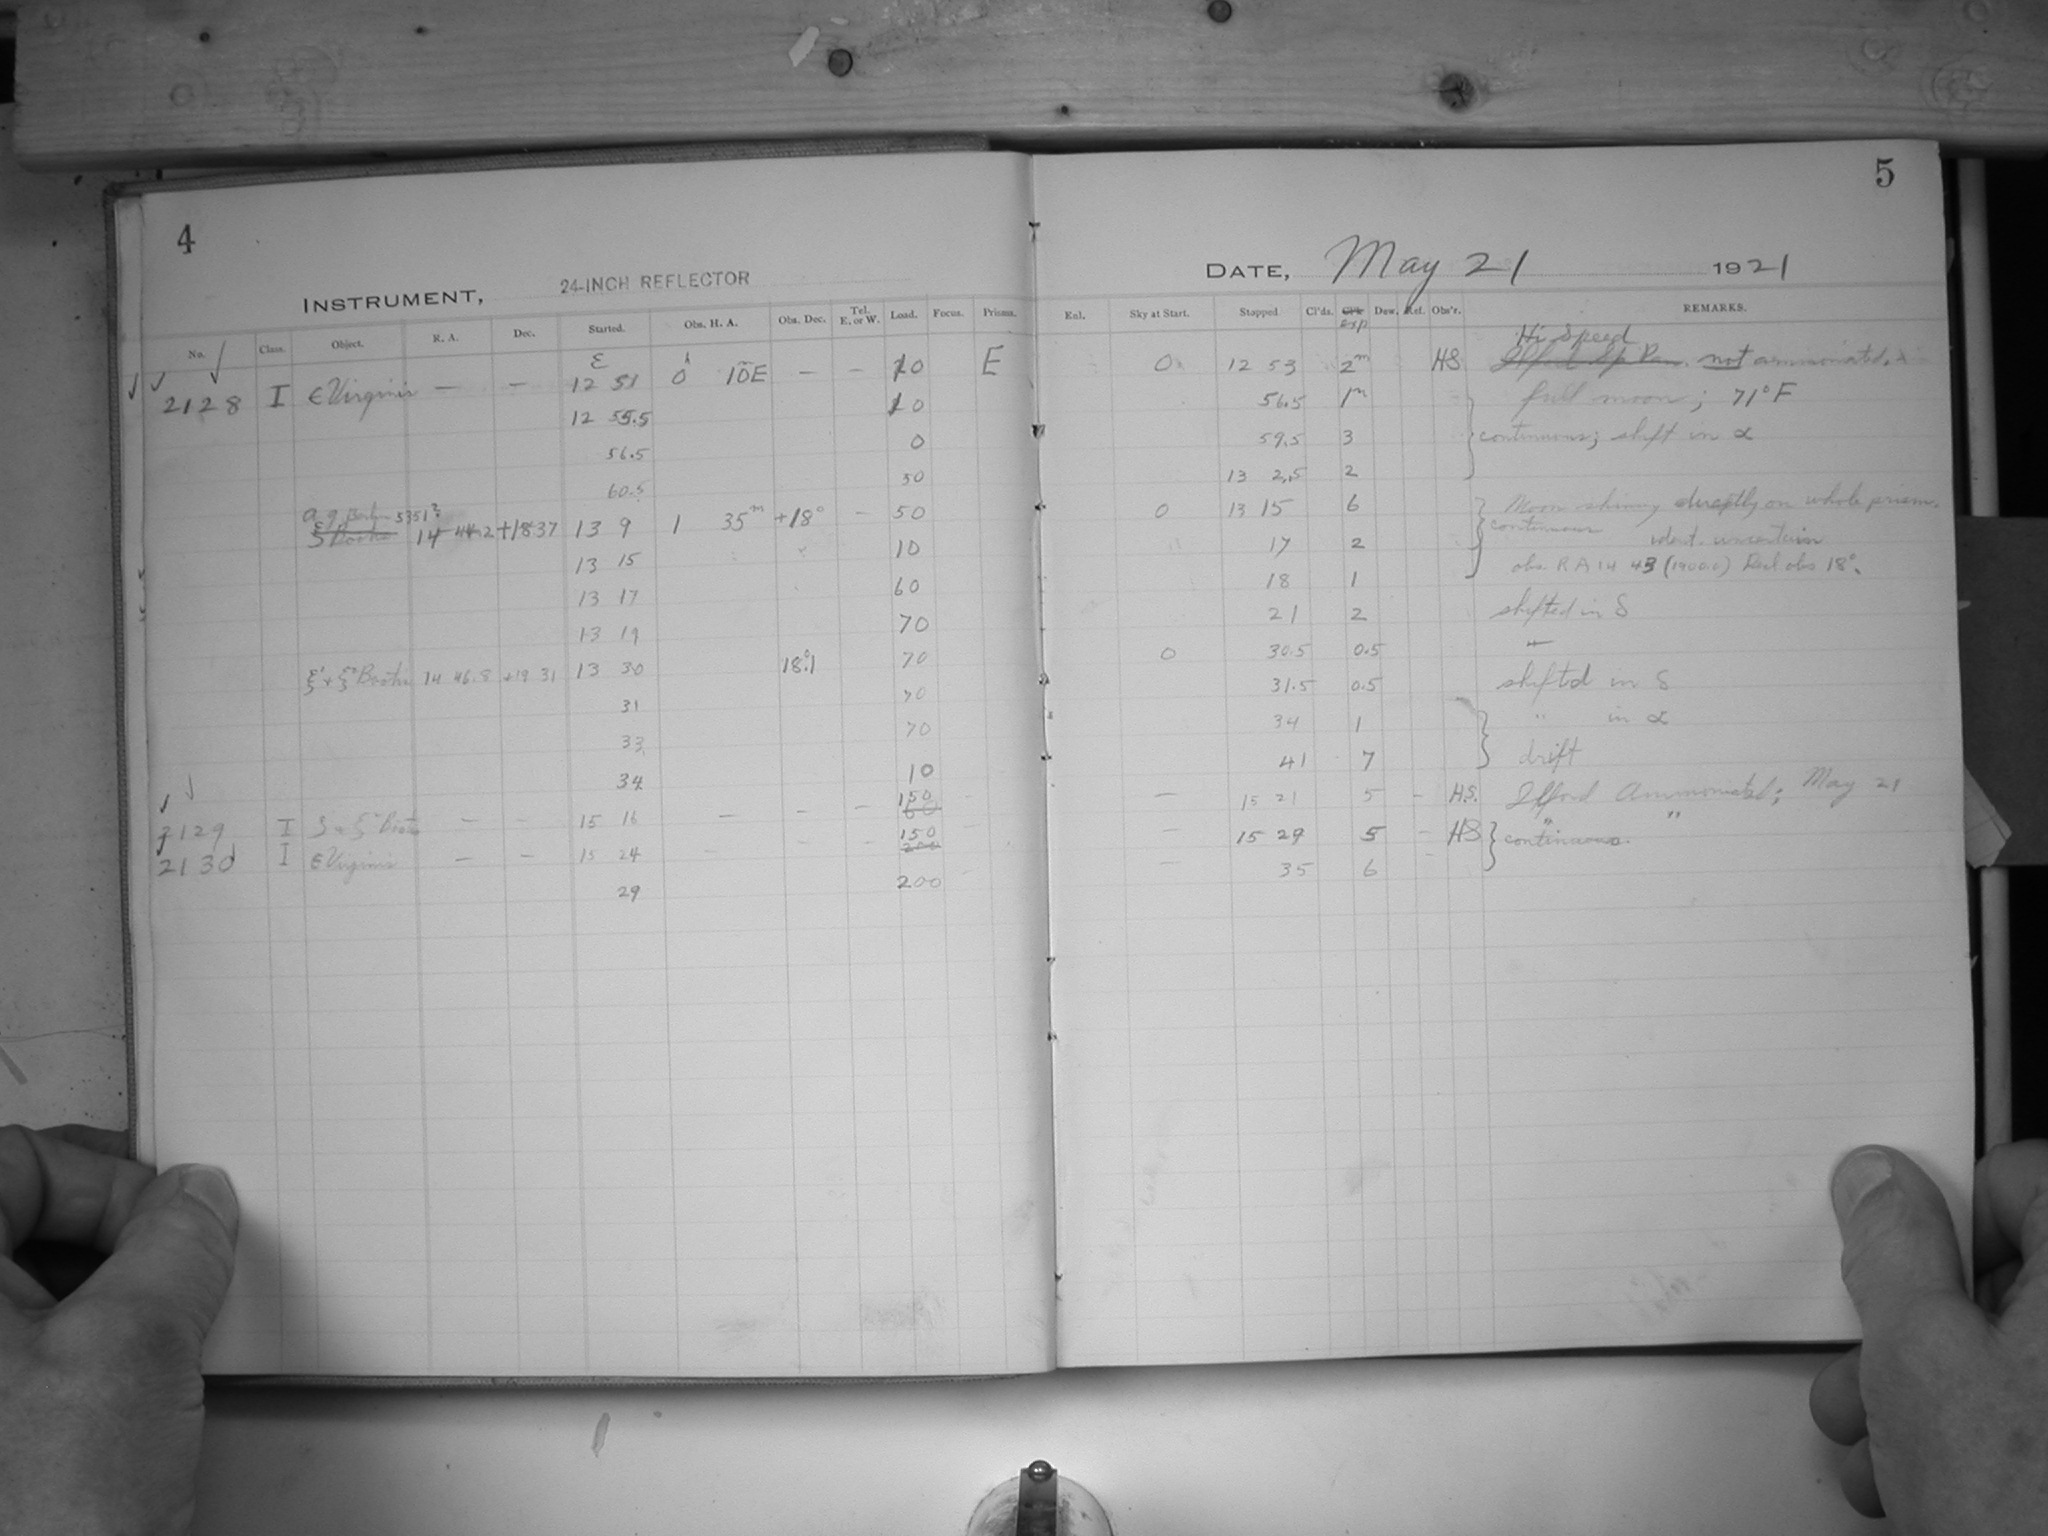 4
INSTRUMENT, 24-INCH REFLECTOR
No. Class. Object. R. A. Dec. Started. Obs. H. A. Obs. Dec. Tel. E. or W. Load. Focus. Prisms.
ε
2128 I ε Virginis — — 12 51 0 10 E — — 10 E
12 55.5 10
56.5 0
60.5 50
5351?
14 44.2 +18 37 13 9 1 35m +18° — 50
13 15 10
13 17 60
13 19 70
ξ' + ξ² Bootis 14 46.8 +19 31 13 30 18°.1 70
31 70
33 70
34 10
2129 I — — 15 16 — — — 150
2130 I ε Virginis — — 15 24 — — — 150
29 200
5
DATE, May 21 1921
Enl. Sky at Start. Stopped Cl'ds. exp Dew. Ref. Obs'r. REMARKS.
Hi Speed
0 12 53 2m HS not ammoniated.
56.5 1m full moon; 71° F
59.5 3 continuous; shift in α
13 2.5 2
0 13 15 6 Moon shining directly on whole prism.
17 2 continuous ident. uncertain
18 1 obs. RA 14 43 (1900.0) Decl obs 18°.
21 2 shifted in δ
0 30.5 0.5 "
31.5 0.5 shifted in δ
34 1 " in α
41 7 drift
— 15 21 5 - H.S. Ilford Ammoniated; May 21
— 15 29 5 - HS " "
continuous.
— 35 6 -